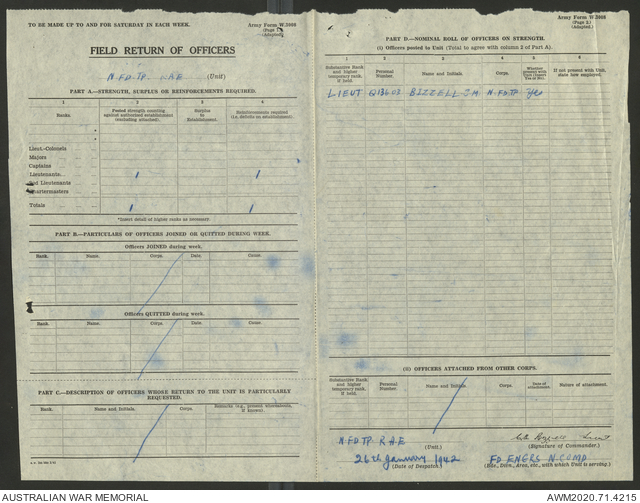 TO BE MADE UP TO AND FOR SATURDAY IN EACH WEEK.
Army Form W.3008
(Adapted)
FIELD RETURN OF OFFICERS
N. FD. TP. R.A.E (Unit)
PART A.—STRENGTH, SURPLUS OR REINFORCEMENTS REQUIRED.
1 2 3 4
Ranks. Posted strength counting against authorised establishment (excluding attached). Surplus to Establishment. Reinforcements required (i.e. deficits on establishment).
Lieut.-Colonels
Majors
Captains
Lieutenants... 1 1
2nd Lieutenants
Quartermasters
Totals 1 1
*Insert detail of higher ranks as necessary.
PART B.—PARTICULARS OF OFFICERS JOINED OR QUITTED DURING WEEK.
Officers JOINED during week.
Rank. Name. Corps. Date. Cause.
Officers QUITTED during week.
Rank. Name. Corps. Date. Cause.
PART C.—DESCRIPTION OF OFFICERS WHOSE RETURN TO THE UNIT IS PARTICULARLY
REQUESTED.
Rank. Name and Initials. Corps. Remarks (e.g., present whereabouts, if known).
Army Form W.3008
(Page 2.)
(Adapted.)
PART D.—NOMINAL ROLL OF OFFICERS ON STRENGTH.
(i) Officers posted to Unit (Total to agree with column 2 of Part A).
1 2 3 4 5 6
Substantive Rank and higher temporary rank, if held. Personal Number. Name and Initials. Corps. Whether present with Unit (Insert Yes or No). If not present with Unit, state how employed.
LIEUT Q13602 BIZZELL J.M. N.FD.TP Yes
(ii) OFFICERS ATTACHED FROM OTHER CORPS.
Substantive Rank and higher temporary rank, if held. Personal Number. Name and Initials. Corps. Date of attachment. Nature of attachment.
N.FD.TP R.A.E
(Unit.) (Signature of Commander.)
26th January 1942 FD ENGRS N.COMD
(Date of Despatch.) (Bde., Divn., Area, etc., with which Unit is serving.)
AUSTRALIAN WAR MEMORIAL AWM2020.71.4215